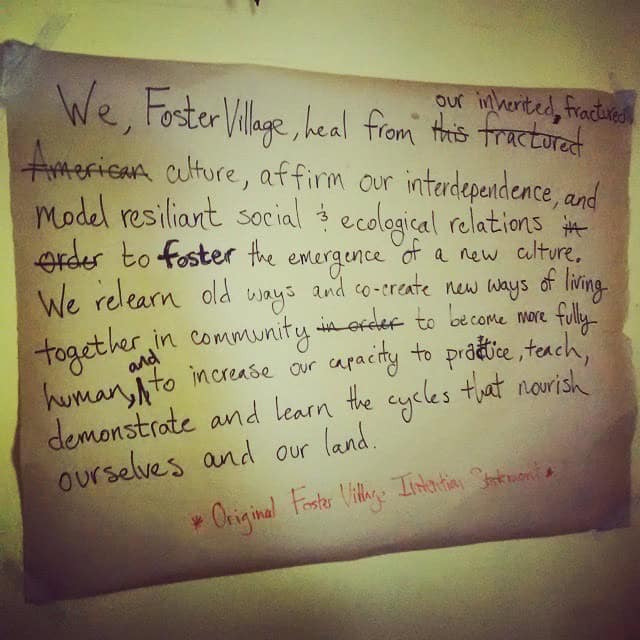 our inherited, fractured
We, Foster Village, heal from this fractured
American culture, affirm our interdependence, and
model resiliant social & ecological relations in
order to foster the emergence of a new culture.
We relearn old ways and co-create new ways of living
together in community in order to become more fully
human, and to increase our capacity to practice, teach,
demonstrate and learn the cycles that nourish
ourselves and our land.
* Original Foster Village Intention Statement *